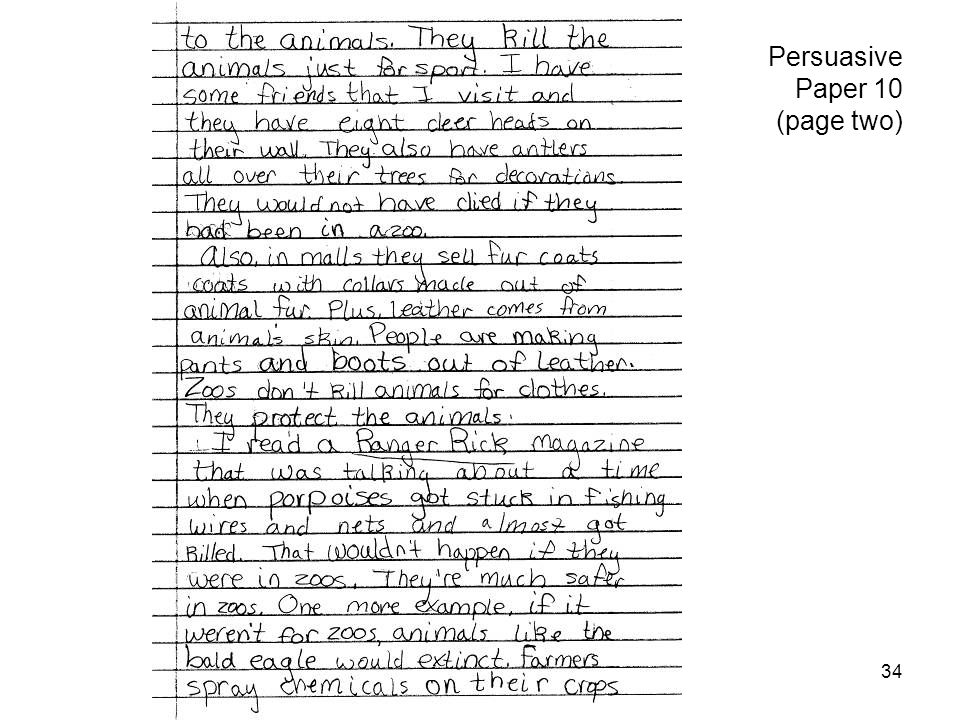 to the animals. They kill the
animals just for sport. I have
some friends that I visit and
they have eight deer heads on
their wall. They also have antlers
all over their trees for decorations.
They would not have died if they
had been in a zoo.
Also, in malls they sell fur coats
coats with collars made out of
animal fur. Plus, leather comes from
animal's skin. People are making
pants and boots out of leather.
Zoos don't kill animals for clothes.
They protect the animals.
I read a Ranger Rick magazine
that was talking about a time
when porpoises got stuck in fishing
wires and nets and almost got
killed. That wouldn't happen if they
were in zoos. They're much safer
in zoos. One more example, if it
weren't for zoos, animals like the
bald eagle would extinct. Farmers
spray chemicals on their crops
Persuasive
Paper 10
(page two)
34